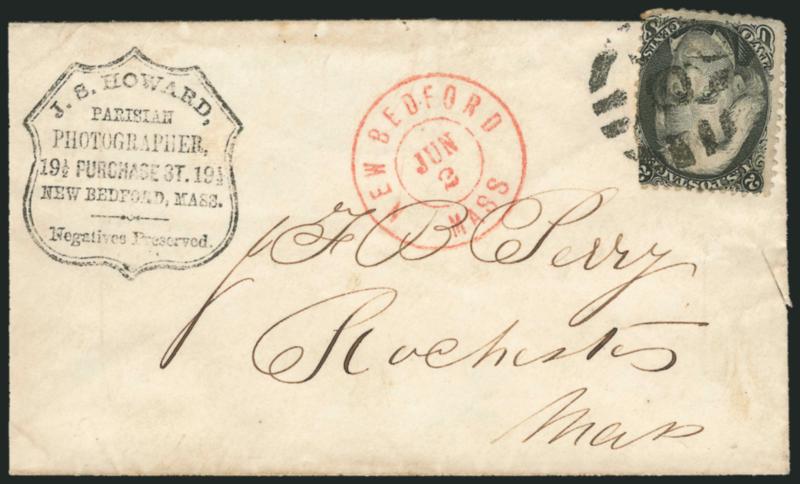 J. S. HOWARD,
PARISIAN
PHOTOGRAPHER,
19½ PURCHASE ST. 19½
NEW BEDFORD, MASS.
Negatives Preserved.
NEW BEDFORD
JUN
2
MASS
F B Perry
Rochester
Mass